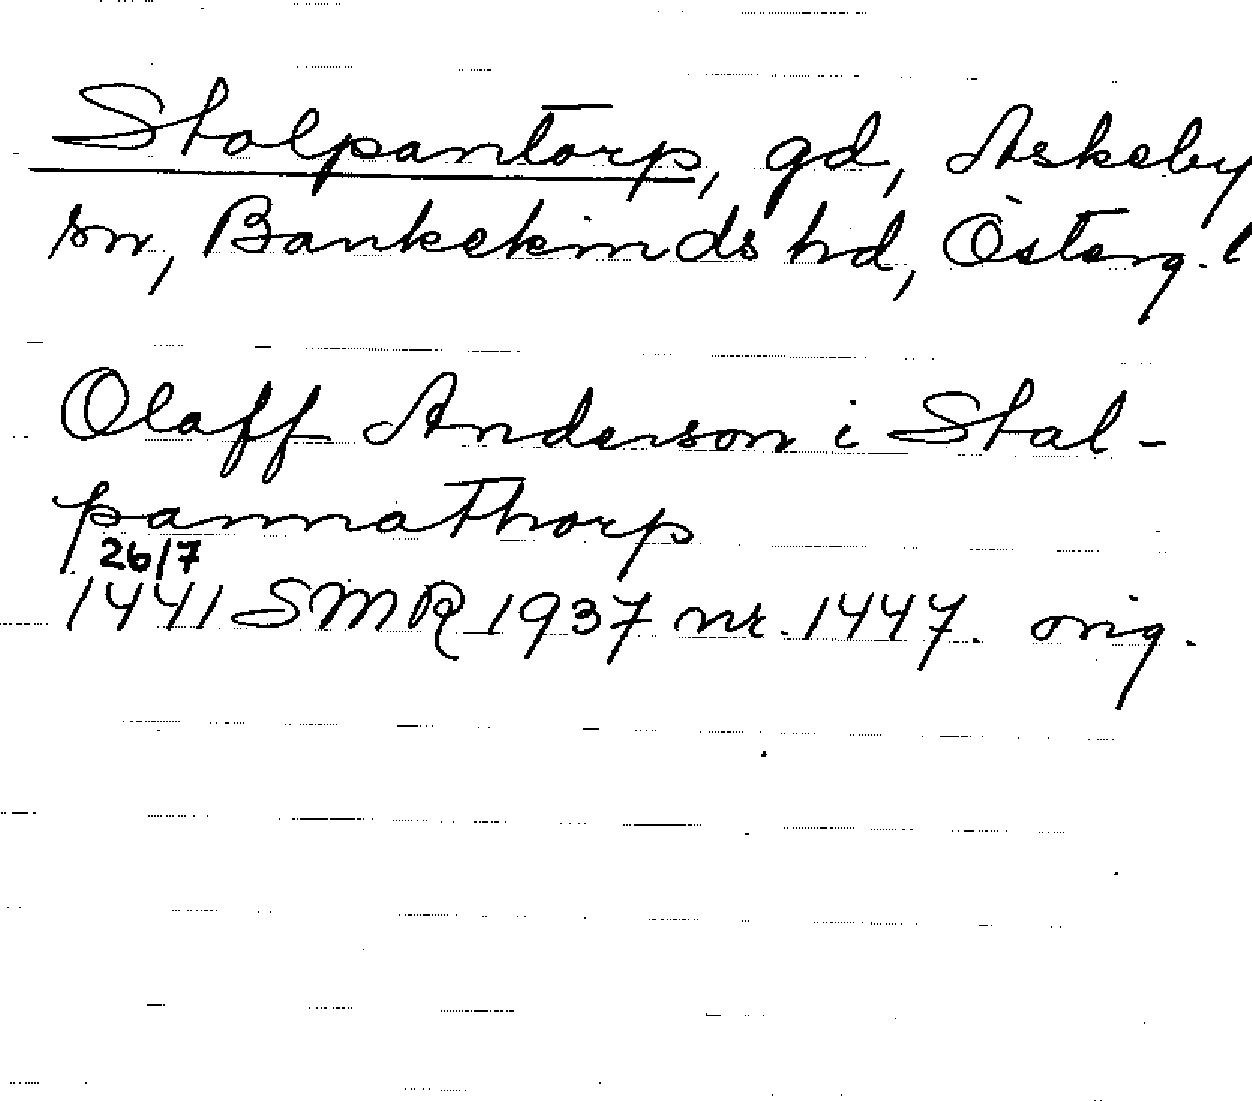 Stolpantorp, gd, Askeby
sn, Bankekinds hd, Österg. l
Olaff Anderson i Stal-
pannathorp
26/7
1441 SMR 1937 nr. 1447. orig.